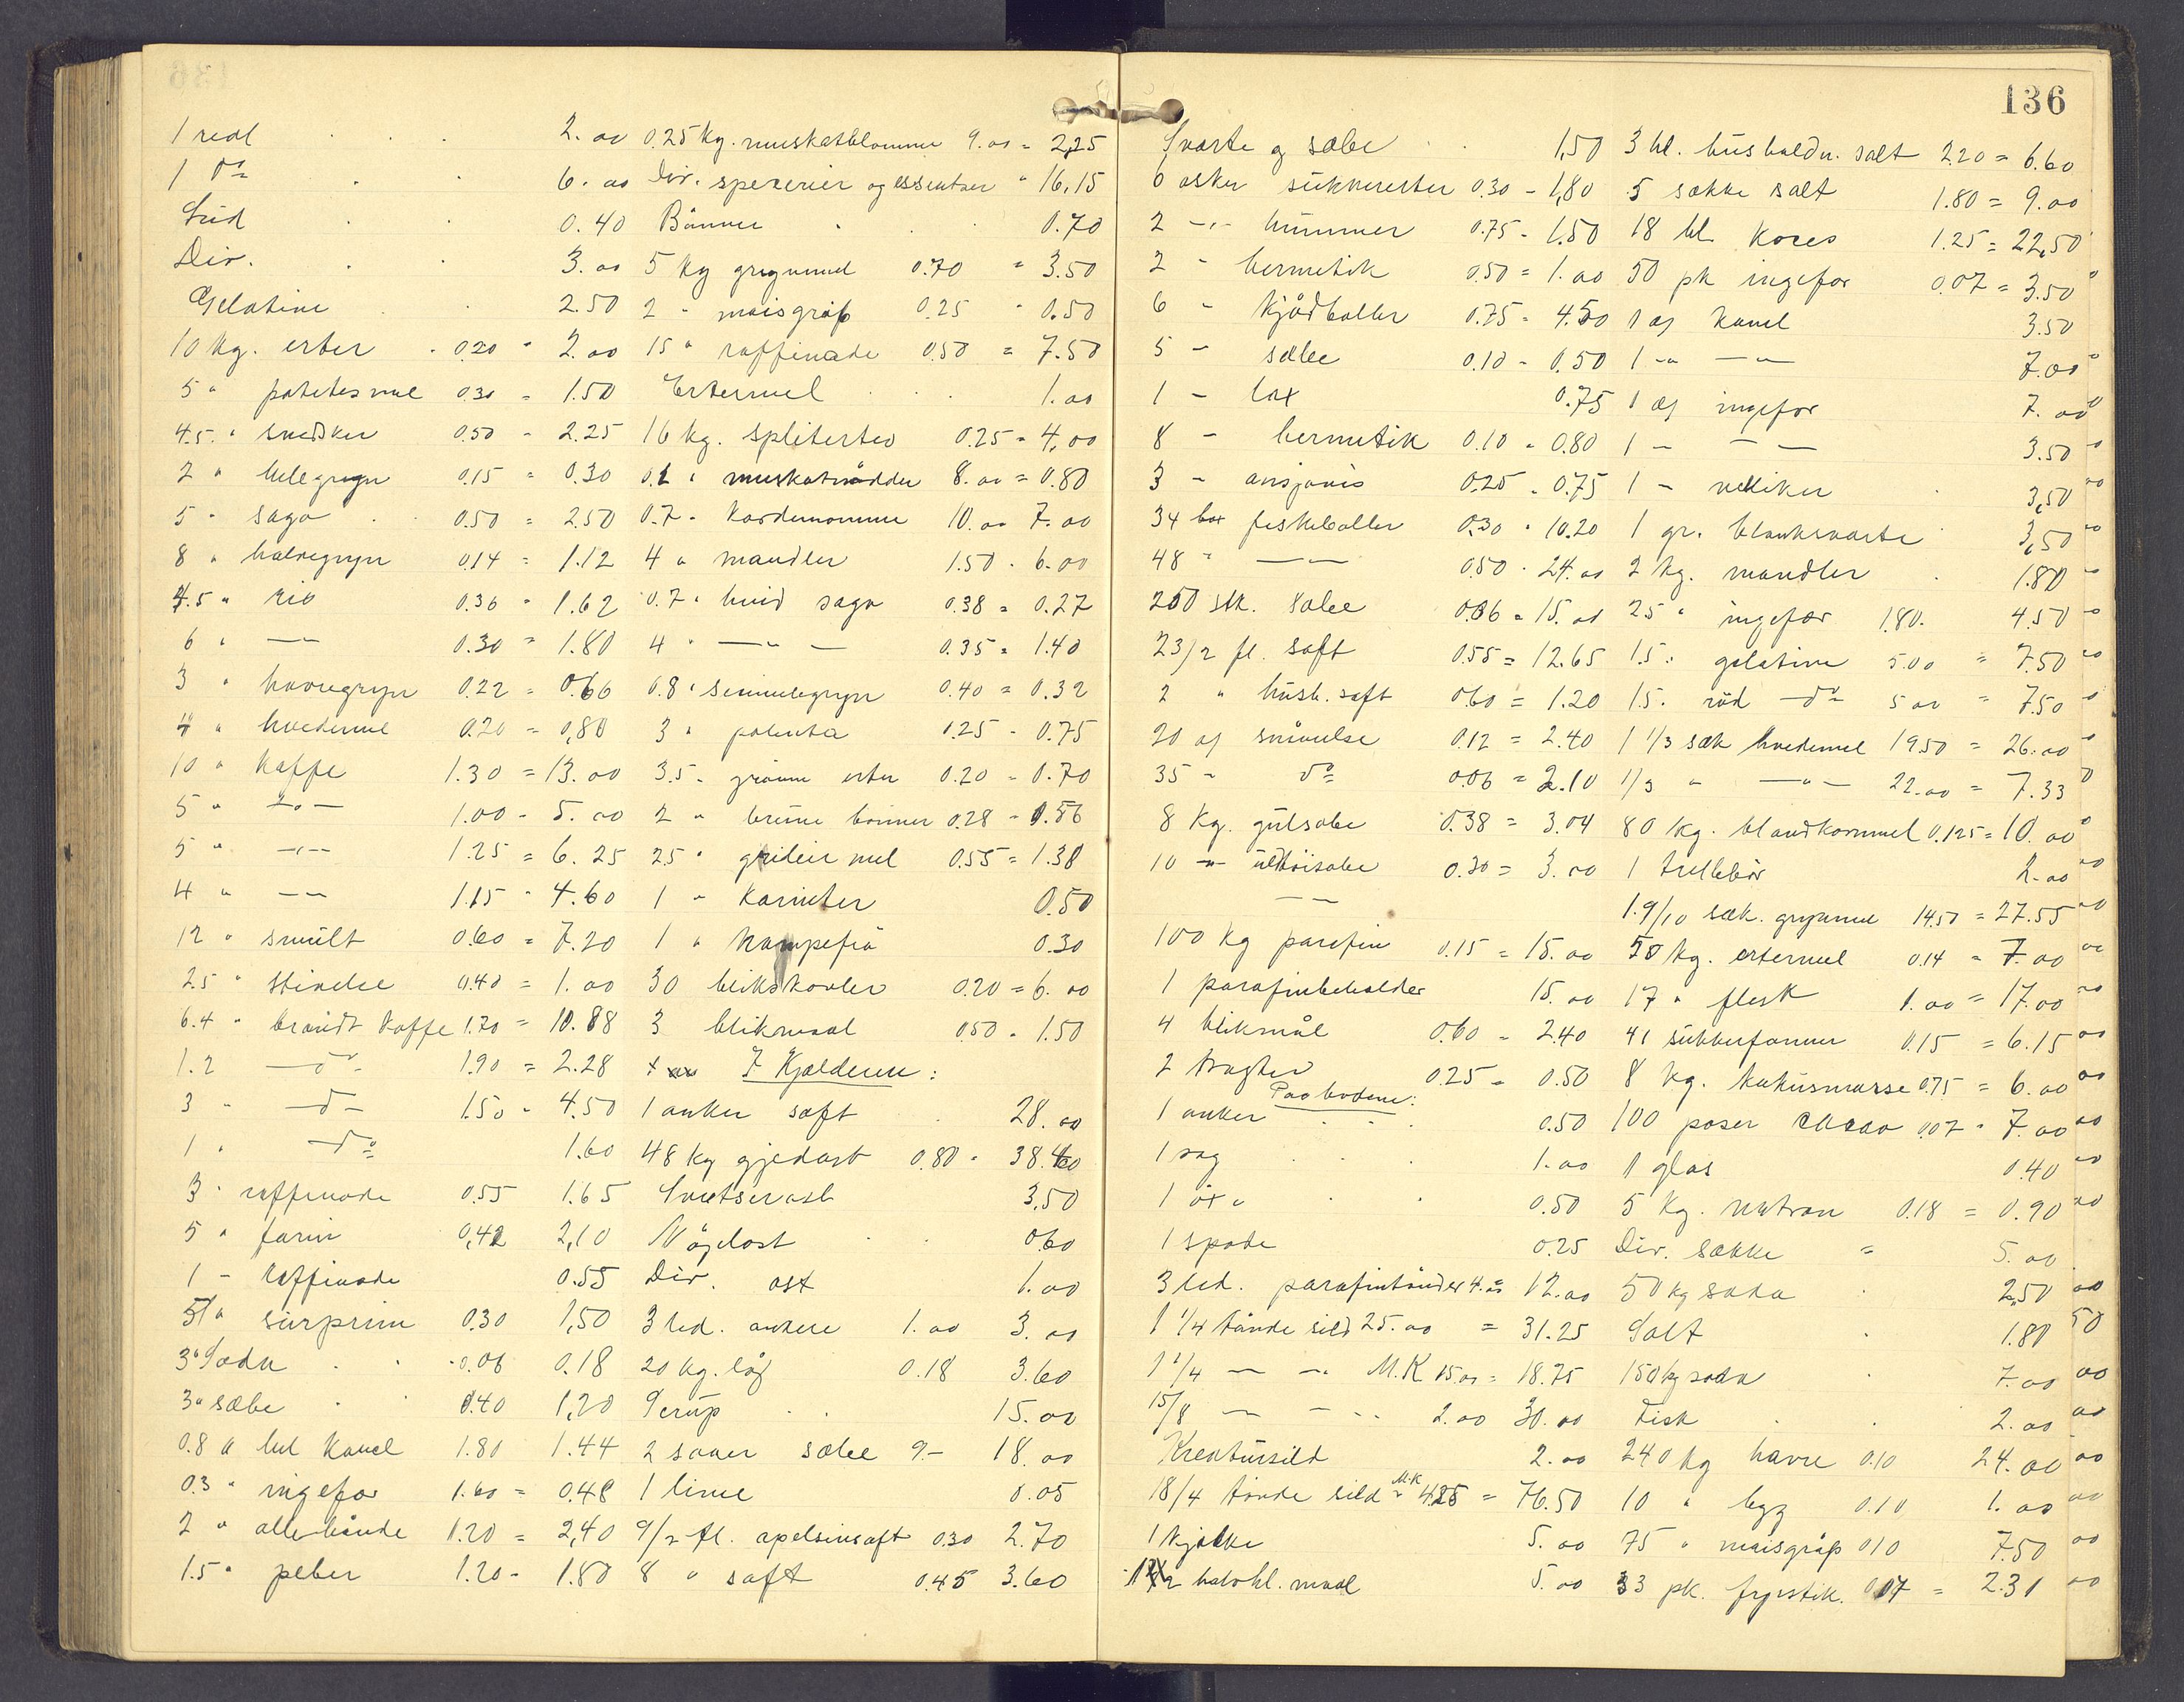 136
1 reol 2.00
1 do 6.00
Lud 0.40
Div. 3.00
Gelatine 2.50
10 kg. erter 0.20 " 2.00
5 " potetesmel 0.30 = 1.50
4.5 " svedsker 0.50 - 2.25
2 " helegryn 0.15 = 0.30
5 " sago 0.50 = 2.50
8 " halvegryn 0.14 = 1.12
4.5 " ris 0.36 " 1.62
6 " — " — 0.30 = 1.80
3 " havregryn 0.22 = 0.66
4 " hvedemel 0.20 = 0,80
10 " Kaffe 1.30 = 13.00
5 " — " — 1.00 - 5.00
5 " — " — 1.25 = 6.25
4 " — " — 1.15 " 4.60
12 " smult 0.60 = 7.20
2.5 " stivelse 0.40 = 1.00
6.4 " brændt Kaffe 1.70 = 10.88
1.2 — do — 1.90 = 2.28
3 " — d — 1.50 - 4.50
1 " — do 1.60
3 " raffinade 0.55 1.65
5 " farin 0,42 2,10
1 - Raffinade 0.55
5 " surprim 0.30 1,50
3 " Soda 0.06 0.18
3 " sæbe 0.40 1,20
0.8 " hel Kanel 1.80 1.44
0.3 " ingefær 1.60 = 0.48
2 " allehånde 1.20 = 2,40
1.5 " peber 1.20 - 1.80
0.25 kg. muskatblomme 9.00 = 2,25
Div. spererier og essentser " 16,15
Bønner 0.70
5 kg grynmel 0.70 = 3.50
2 " maisgrøp 0.25 " 0.50
15 " raffinade 0.50 = 7.50
Ertermel 1.00
16 kg. spliterter 0.25 = 4,00
0.1 " muskatnødder 8.00 = 0.80
0.7 " Kardemomme 10.00 7.00
4 " mandler 1.50 - 6.00
0.7 " hvid sago 0.38 = 0.27
4 " — " — 0.35 = 1.40
0.8 " semulegryn 0.40 = 0.32
3 " polenta 0.25 - 0.75
3.5 " grønne erter 0.20 - 0.70
2 " brune bønner 0.28 - 0.56
2.5 " mel 0.55 = 1.38
1 " Korinter 0.50
1 " hampefrø 0.30
30 blikskovler 0.20 = 6.00
3 blikmaal 0.50 - 1.50
I Kjælderen:
1 anker saft 28.00
48 kg gjedost 0.80 " 38.40
Sveitserost 3,50
Nøgelost 0.60
Div. ost 1.00
3 led. ankere 1.00 3.00
20 kg. løg 0.18 3.60
Serup 15.00
2 saaer sælee 9.- 18.00
1 lime 0.05
9/2 fl. apelsinsaft 0.30 2.70
8 " saft 0.45 3.60
Sværte og sæbe 1,50
6 æsker sukkererter 0.30 - 1,80
2 -"- hummer 0.75 - 1.50
2 " hermetik 0.50 = 1.00
6 " kjødboller 0.75 - 4.50
5 - sælee 0.10 - 0.50
1 - lax 0.75
8 - hermetik 0.10 - 0.80
3 - ansjovis 0.25 - 0.75
34 box fiskeboller 0.30 " 10.20
48 " — " — 0.50 - 24.00
250 stk. sælee 0.06 = 15.00
23/2 fl. saft 0.55 = 12.65
2 " hush. saft 0.60 = 1.20
20 æs snivelse 0.12 = 2.40
35 " do 0.06 = 2.10
8 kg. gulsæbe 0.38 = 3.04
10 -"- uldtøisæbe 0.30 = 3.00
— " —
100 kg parafin 0.15 = 15.00
1 parafinbeholder 15.00
4 blikmål 0.60 - 2.40
2 tragter 0.25 - 0.50
Paa bodene:
1 anker 0.50
1 sag 1.00
1 öx 0.50
1 spade 0.25
3 led. parafintønder 4.00 12.00
1 1/4 tønde sild 25.00 = 31.25
1 1/4 — " — M.K. 15.00 = 18.75
15/8 — " — 2.00 30.00
Kreatursild 2.00
18/4 tønde sild M.K. 4.25 = 76.50
1 kjælke 5.00
halvhl. maal 5.00
3 hl. husholdn. salt 2.20 = 6.60
5 sække salt 1.80 = 9.00
18 hl. Koces 1.25 = 22,50
50 pk ingefær 0.07 = 3.50
1 æs Kanel 3.50
1 -"- — " — 7.00
1 æs ingefær 7.00
1 — — 3.50
1 - nelliker 3,50
1 gr. blanksværte 3,50
2 kg. mandler 1.80
2.5 " ingefær 1.80 - 4.50
1.5 " gelatine 5.00 = 7.50
1.5 " röd — do — 5.00 = 7.50
1 1/3 sæk hvedemel 19.50 = 26.00
1/3 " — " — 22.00 = 7.33
80 kg. blandkornmel 0.125 = 10.00
1 trillebör 2.00
1.9/10 sæk. grynmel 14.50 = 27.55
50 kg. ertemel 0.14 - 7.00
17 " flesk 1.00 = 17.00
41 sukkerformer 0.15 = 6.15
8 kg. kokusmasse 0.75 = 6.00
100 poser cacao 0.07 " 7.00
1 glas 0.40
5 kg. natron 0.18 = 0.90
Div. sække = 5.00
50 kg soda 2,50
Salt 1.80
150 kg soda 7.00
Fisk 2.00
240 kg havre 0.10 24.00
10 " byg 0.10 1.00
75 " maisgrøp 0.10 7.50
33 pk. fyrstik. 0.07 = 2.31